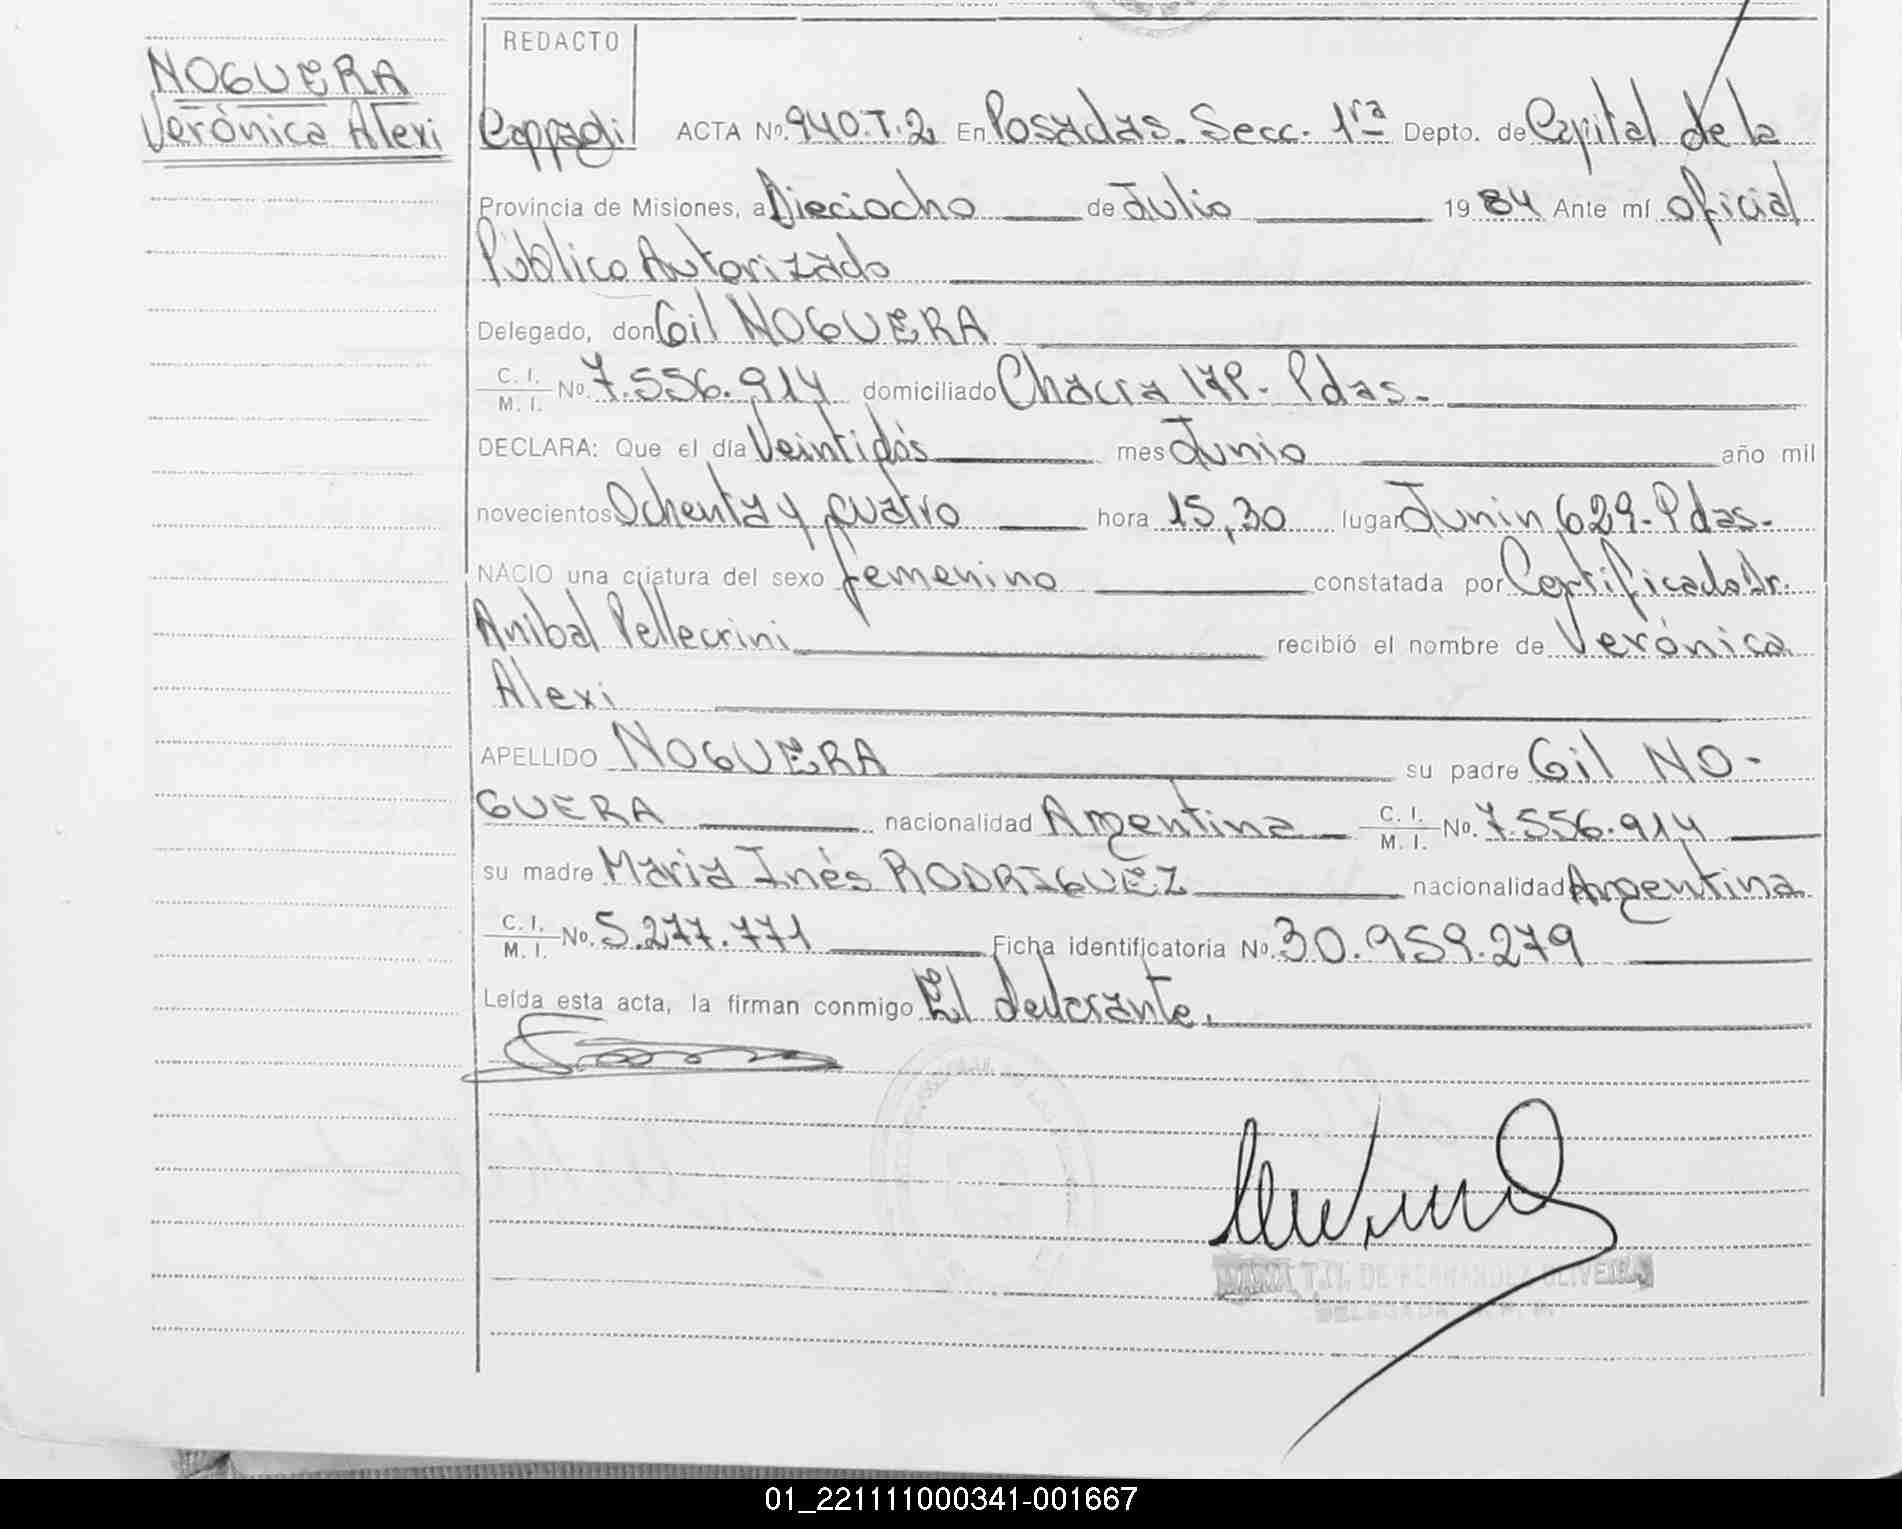 REDACTO
NOGUERA
Verónica Alexi
Cappagli ACTA No. 940.T.2 En Posadas. Secc. 1ra Depto. de Capital de la
Provincia de Misiones, a Dieciocho de Julio 19 84 Ante mí oficial
Público Autorizado
Delegado, don Gil NOGUERA
C. I. M. I. No. 7.556.914 domiciliado Chacra 178- Pdas.-
DECLARA: Que el día Veintidós mes Junio año mil
novecientos Ochenta y cuatro hora 15,30 lugar Junin 629- Pdas-
NACIO una criatura del sexo femenino constatada por Certificado Dr.
Anibal Pellecrini recibió el nombre de Verónica
Alexi
APELLIDO NOGUERA su padre Gil NO-
GUERA nacionalidad Argentina C. I. M. I. No. 7.556.914
su madre Maria Inés RODRIGUEZ nacionalidad Argentina
C. I. M. I. No. 5.277.771 Ficha identificatoria No. 30.959.279
Leída esta acta, la firman conmigo El declarante.
DE FERNANDEZ OLIVEIRA
DELEGADA
01_221111000341-001667